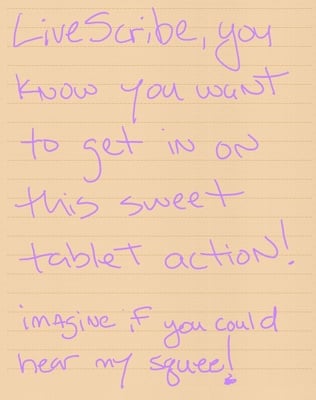 LiveScribe, you
know you want
to get in on
this sweet
tablet action!
imagine if you could
hear my squee!